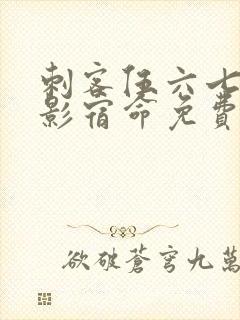 刺客伍六七
影宿命免费
欲破蒼穹九萬